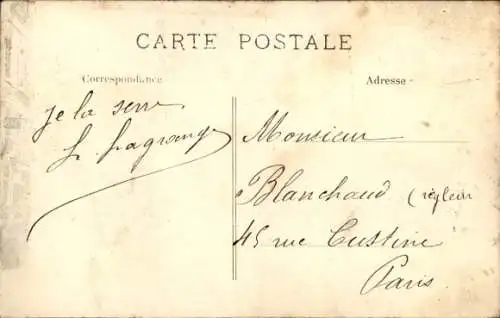 CARTE POSTALE
Correspondance
Adresse
Je la serre
L. Lagrange
Monsieur
Blanchaud (régleur
45 rue Custine
Paris